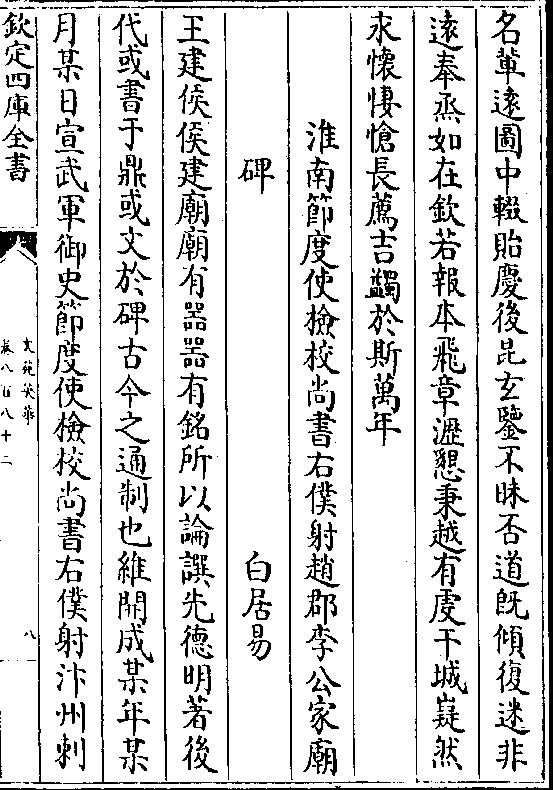 名葷逺圖中輟貽慶後昆玄鑒不昧否道既傾復迷非
逺奉烝如在欽若報本飛章瀝懇秉越有䖍干城嶷然
永懷悽愴長薦吉蠲於斯萬年
淮南節度使檢校尚書右僕射趙郡李公家廟
碑 白居易
王建侯侯建廟廟有器器有銘所以論譔先德明著後
代或書于鼎或文於碑古今之通制也維開成某年某
月某日宣武軍御史節度使檢校尚書右僕射汴州刺
欽定四庫全書
文苑英華
卷八百八十二
八